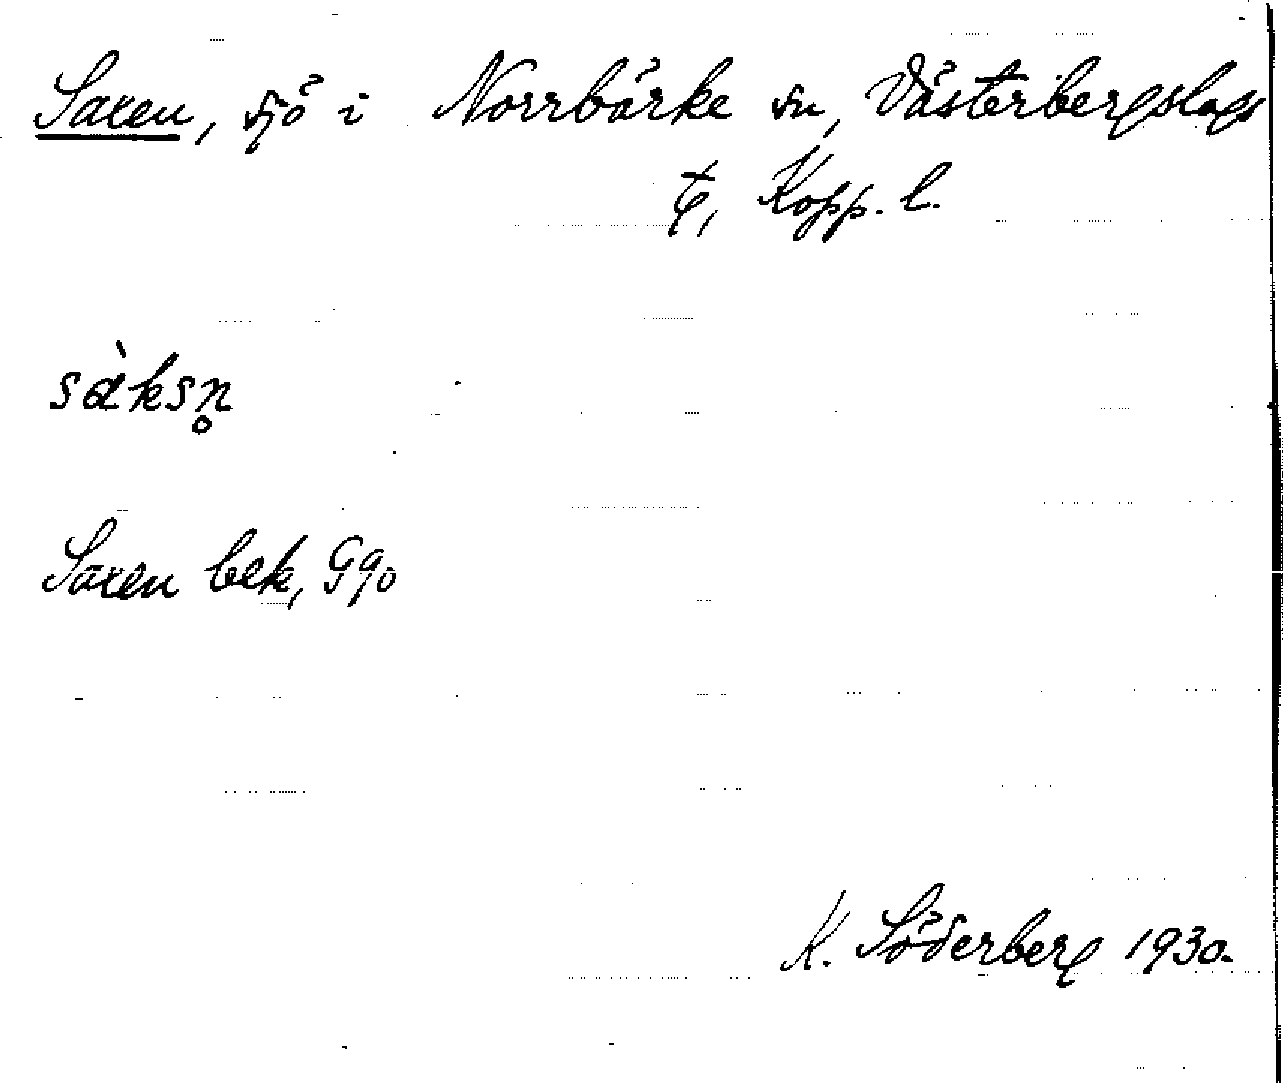 Saxen, sjö i Norrbärke sn, Västerbergslags
tg, Kopp. l.
sàksn̥
Saxen bek, G90
K. Söderberg 1930.